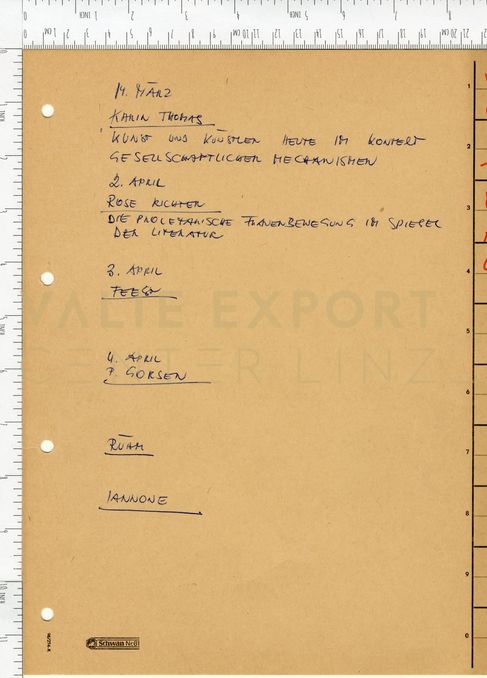 14. MÄRZ
KARIN THOMAS
KUNST UND KÜNSTLER HEUTE IM KONTEXT
GESELLSCHAFTLICHER MECHANISMEN
2. APRIL
ROSE RICHTER
DIE PROLETARISCHE FRAUENBEWEGUNG IM SPIEGEL
DER LITERATUR
3. APRIL
4. APRIL
P. GORSEN
RÜHM
IANNONE
VALIE EXPORT
CENTER LINZ
Schwan